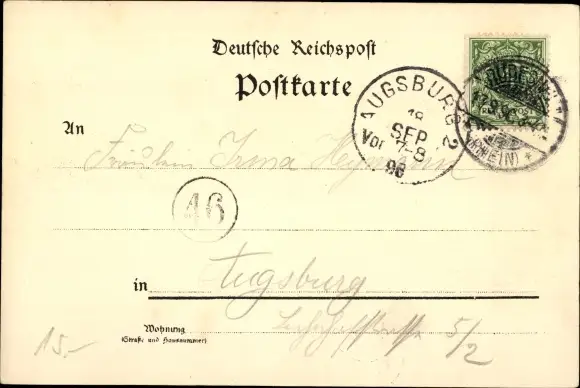 Deutsche Reichspost
Postkarte
AUGSBURG 2
18
SEP
Vor 7-8
98
(RHEIN) *
An
Fräulein Irma Heymann
46
in
Augsburg
Wohnung
(Straße und Hausnummer)
5/2
15.-